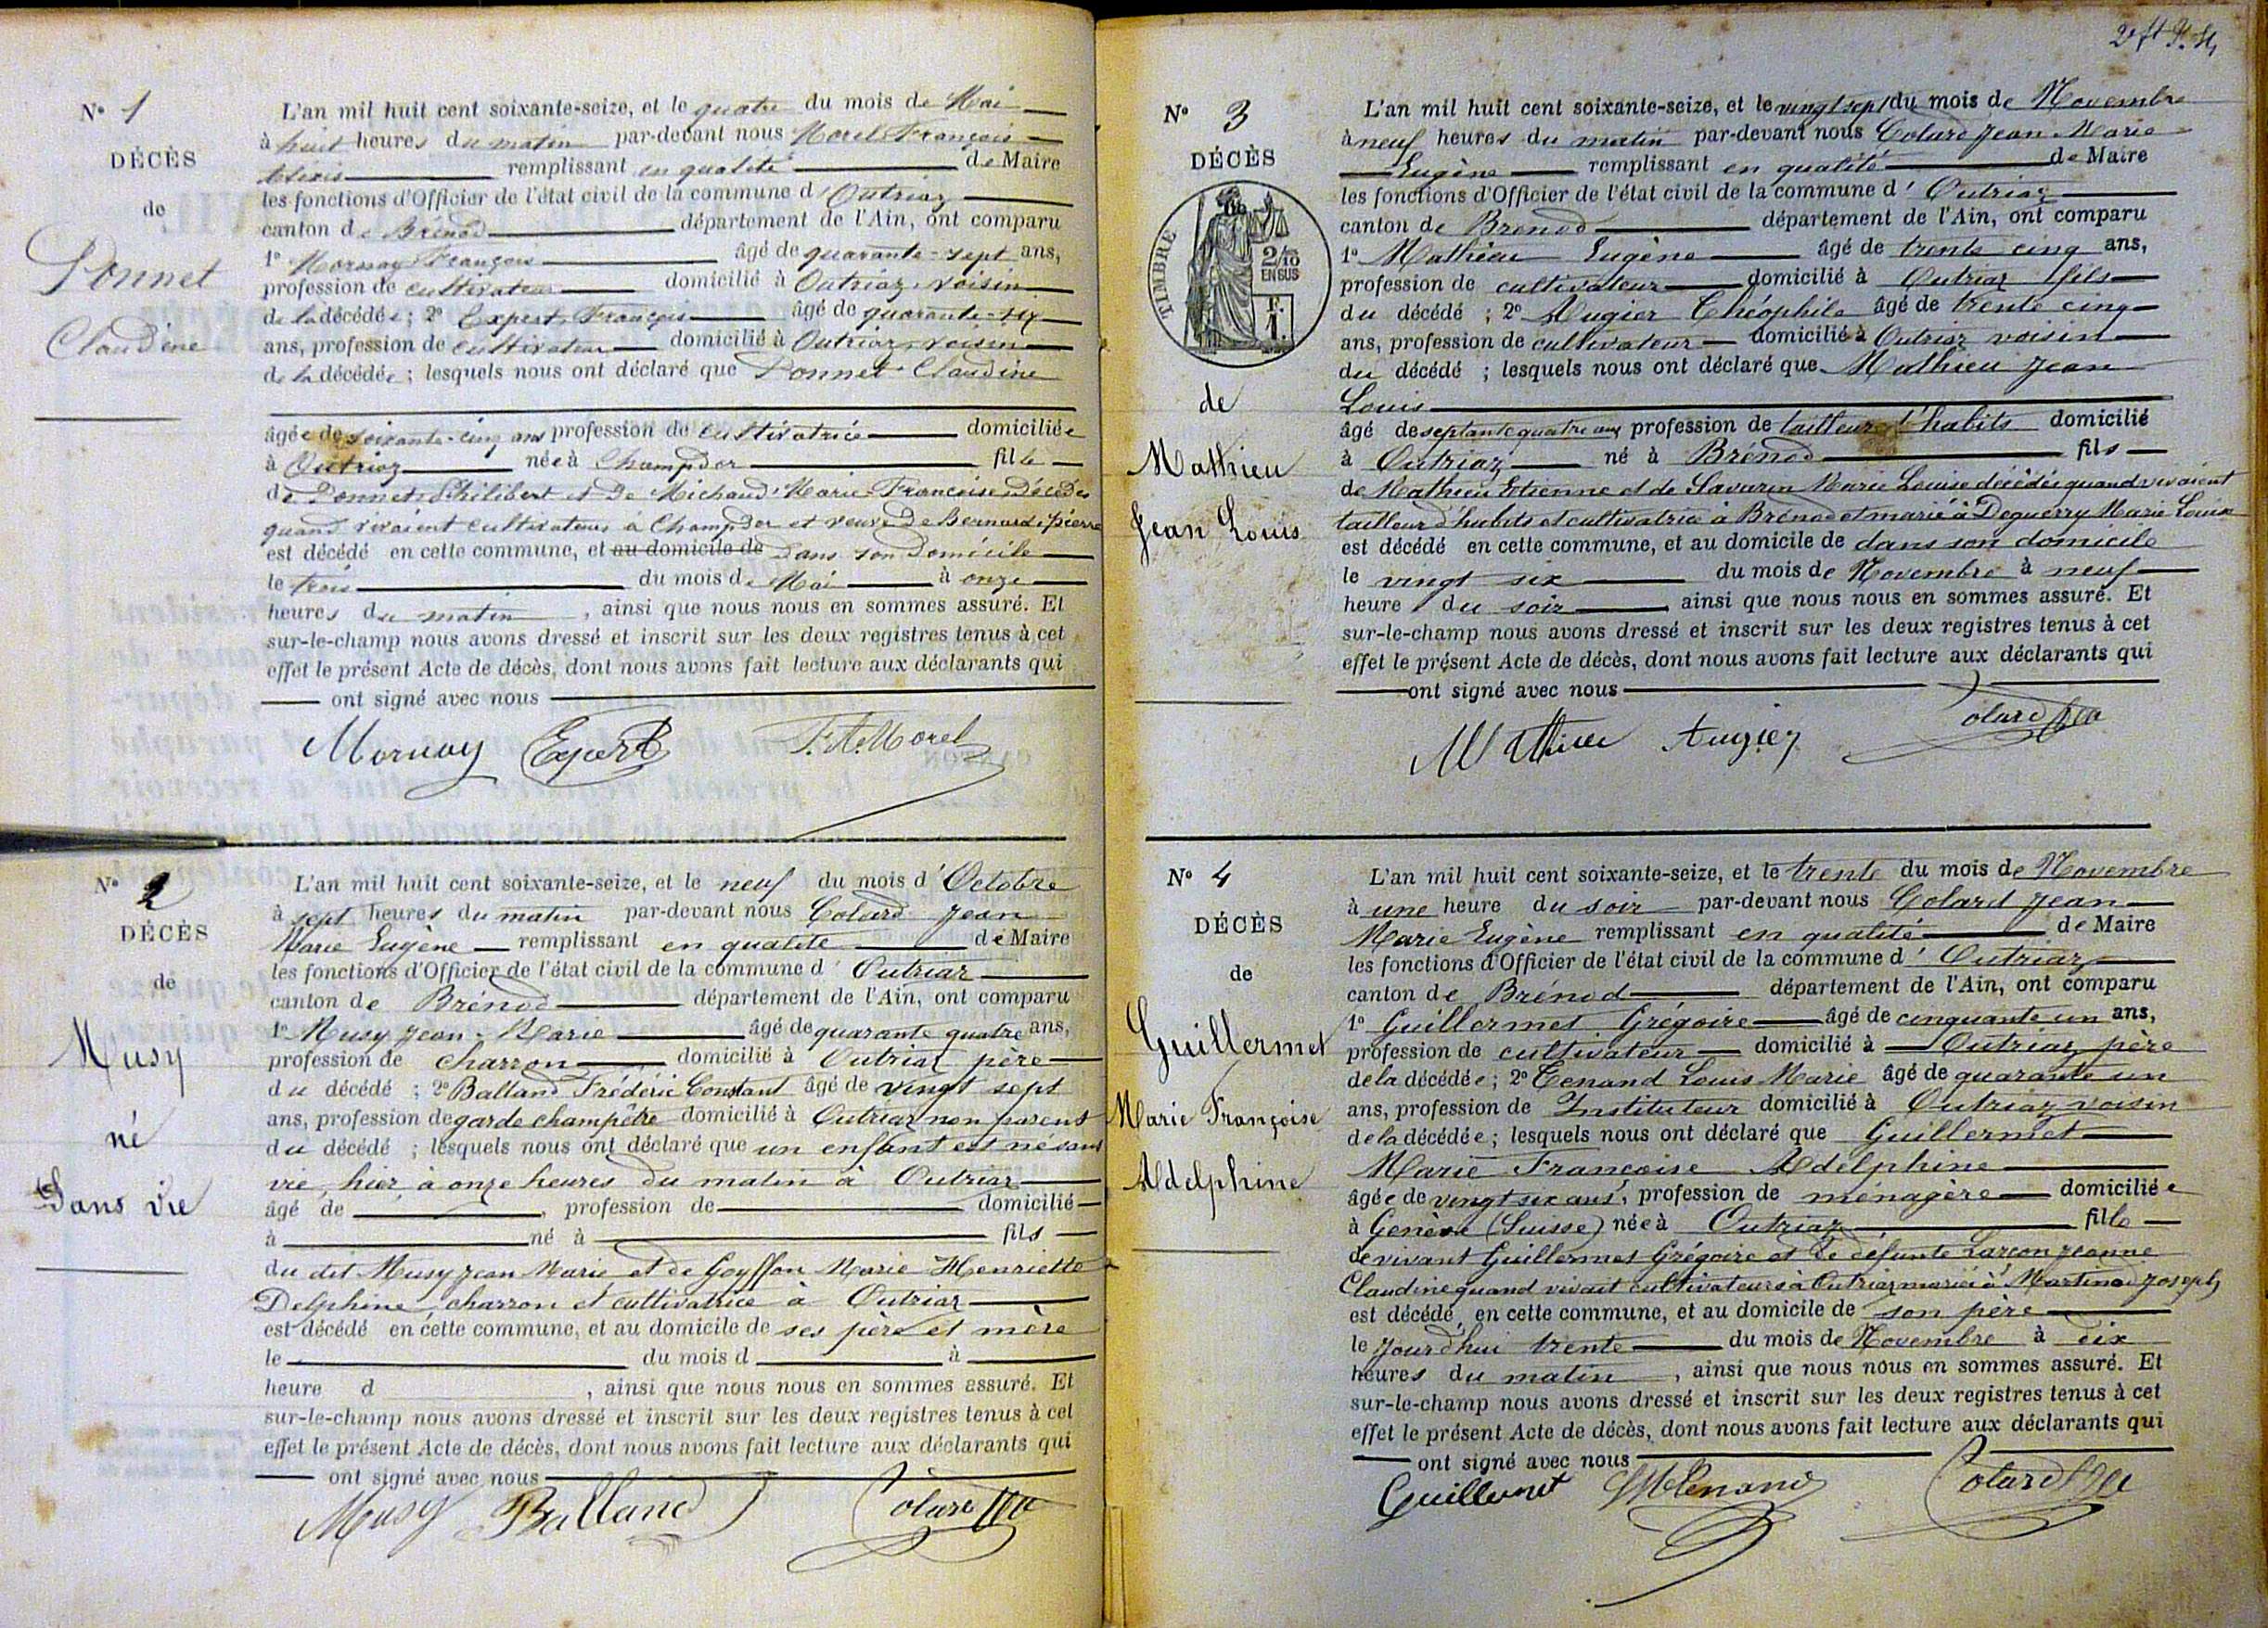 N° 1
DÉCÈS
de
Ponnet
Claudine
L'an mil huit cent soixante-seize, et le quatre du mois de Mai
à huit heures du matin par-devant nous Morel François
Alexis remplissant en qualité de Maire
les fonctions d'Officier de l'état civil de la commune d'Outriaz
canton de Brénod département de l'Ain, ont comparu
1° Mornay François âgé de quarante-sept ans,
profession de cultivateur domicilié à Outriaz, voisin
de la décédée; 2° Expert François âgé de quarante-six
ans, profession de cultivateur domicilié à Outriaz, voisin
de la décédée; lesquels nous ont déclaré que Ponnet Claudine
âgée de soixante-cinq ans profession de cultivatrice domiciliée
à Outriaz née à Champdor fille
de Ponnet Philibert et de Michaud Marie Françoise décédés
quand vivaient cultivateurs à Champdor et veuve de Bernard Pierre
est décédé en cette commune, et au domicile de dans son domicile
le trois du mois de Mai à onze
heures du matin, ainsi que nous nous en sommes assuré. Et
sur-le-champ nous avons dressé et inscrit sur les deux registres tenus à cet
effet le présent Acte de décès, dont nous avons fait lecture aux déclarants qui
ont signé avec nous
Mornay Expert F. A. Morel
N° 2
DÉCÈS
de
Musy
né
Sans vie
L'an mil huit cent soixante-seize, et le neuf du mois d'Octobre
à sept heures du matin par-devant nous Colard Jean
Marie Eugène remplissant en qualité de Maire
les fonctions d'Officier de l'état civil de la commune d'Outriaz
canton de Brénod département de l'Ain, ont comparu
1° Musy Jean-Marie âgé de quarante quatre ans,
profession de charron domicilié à Outriaz père
du décédé; 2° Balland Frédéric Constant âgé de vingt sept
ans, profession de garde champêtre domicilié à Outriaz non parent
du décédé; lesquels nous ont déclaré que un enfant est né sans
vie, hier à onze heures du matin à Outriaz
âgé de, profession de domicilié
à né à fils
du dit Musy Jean Marie et de Goyffon Marie Henriette
Delphine, charron et cultivatrice à Outriaz
est décédé en cette commune, et au domicile de ses père et mère
le du mois d à
heure d, ainsi que nous nous en sommes assuré. Et
sur-le-champ nous avons dressé et inscrit sur les deux registres tenus à cet
effet le présent Acte de décès, dont nous avons fait lecture aux déclarants qui
ont signé avec nous
Musy Balland Colard
N° 3
DÉCÈS
TIMBRE
2/10
EN SUS
de
Mathieu
Jean Louis
L'an mil huit cent soixante-seize, et le vingt sept du mois de Novembre
à neuf heures du matin par-devant nous Colard Jean-Marie
Eugène remplissant en qualité de Maire
les fonctions d'Officier de l'état civil de la commune d'Outriaz
canton de Brénod département de l'Ain, ont comparu
1° Mathieu Eugène âgé de trente cinq ans,
profession de cultivateur domicilié à Outriaz fils
du décédé; 2° Augier Théophile âgé de trente cinq
ans, profession de cultivateur domicilié à Outriaz voisin
du décédé; lesquels nous ont déclaré que Mathieu Jean
Louis
âgé de septante quatre ans profession de tailleur d'habits domicilié
à Outriaz né à Brénod fils
de Mathieu Etienne et de Savarin Marie Louise décédés quand vivaient
tailleur d'habits et cultivatrice à Brénod et marié à Deguerry Marie Louise
est décédé en cette commune, et au domicile de dans son domicile
le vingt six du mois de Novembre à neuf
heure du soir, ainsi que nous nous en sommes assuré. Et
sur-le-champ nous avons dressé et inscrit sur les deux registres tenus à cet
effet le présent Acte de décès, dont nous avons fait lecture aux déclarants qui
ont signé avec nous
Mathieu Augier Colard
N° 4
DÉCÈS
de
Guillermet
Marie Françoise
Adelphine
L'an mil huit cent soixante-seize, et le trente du mois de Novembre
à une heure du soir par-devant nous Colard Jean
Marie Eugène remplissant en qualité de Maire
les fonctions d'Officier de l'état civil de la commune d'Outriaz
canton de Brénod département de l'Ain, ont comparu
1° Guillermet Grégoire âgé de cinquante un ans,
profession de cultivateur domicilié à Outriaz père
de la décédée; 2° Tenand Louis Marie âgé de quarante un
ans, profession de Instituteur domicilié à Outriaz voisin
de la décédée; lesquels nous ont déclaré que Guillermet
Marie Françoise Adelphine
âgée de vingt six ans, profession de ménagère domiciliée
à Genève (Suisse) née à Outriaz fille
de vivant Guillermet Grégoire et de défunte Larçon Jeanne
Claudine quand vivait cultivateurs à Outriaz mariée à Martinod Joseph
est décédé, en cette commune, et au domicile de son père
le jourd'hui trente du mois de Novembre à dix
heures du matin, ainsi que nous nous en sommes assuré. Et
sur-le-champ nous avons dressé et inscrit sur les deux registres tenus à cet
effet le présent Acte de décès, dont nous avons fait lecture aux déclarants qui
ont signé avec nous
Guillermet Tenand Colard